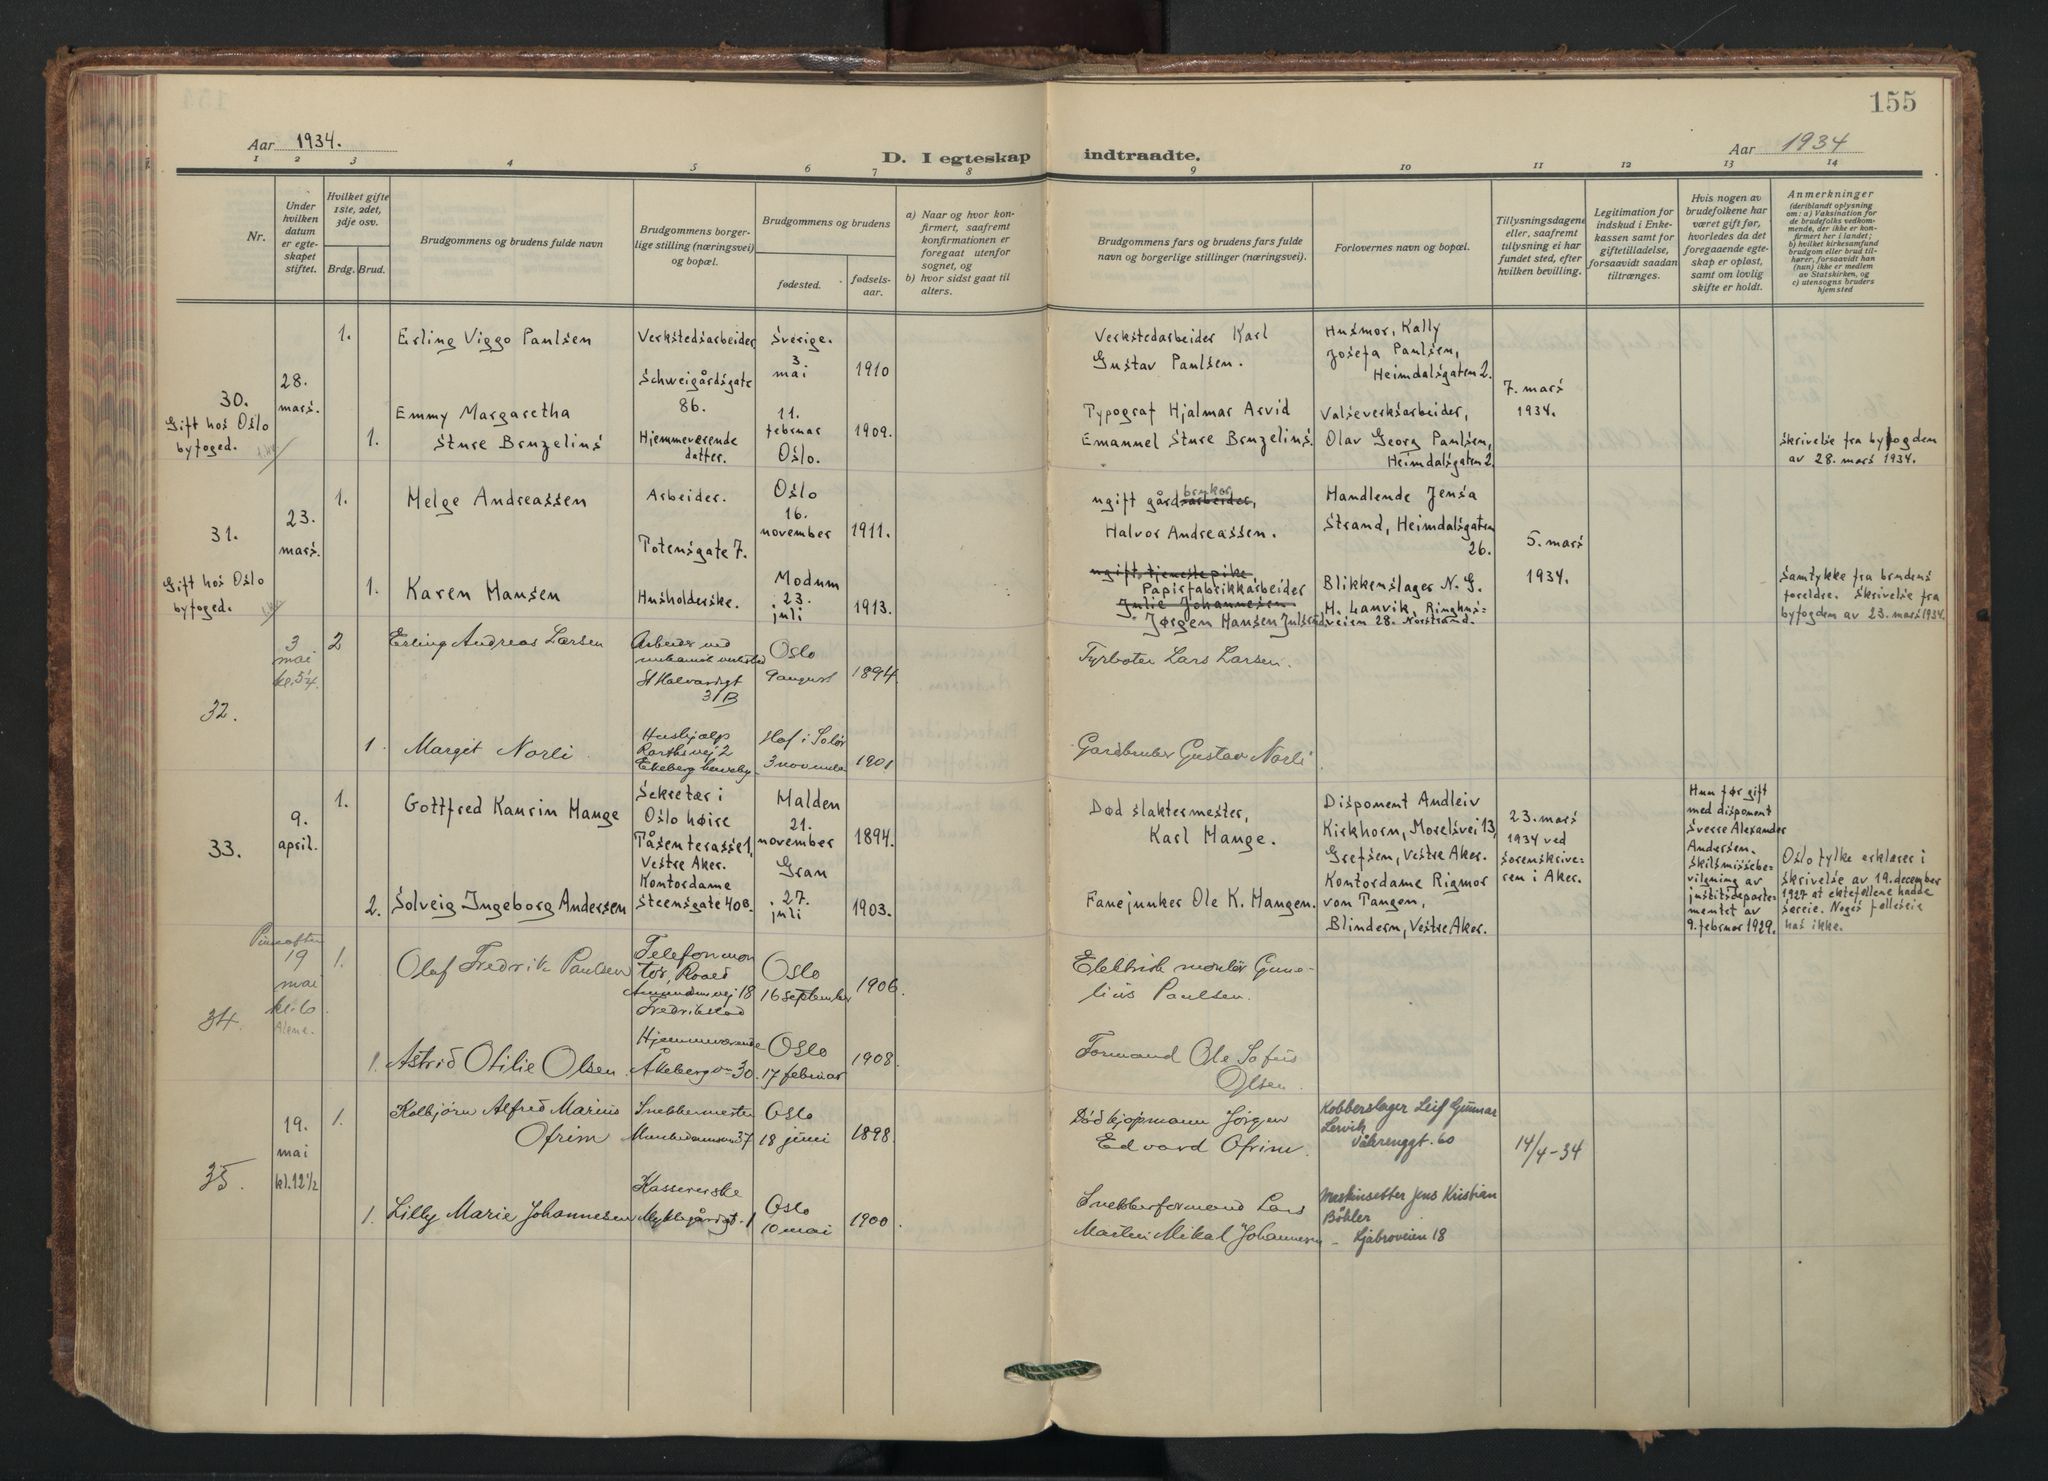 155
Aar 1934.
D. I egteskap indtraadte.
Aar 1934
1 2 3 4 5 6 7 8 9 10 11 12 13 14
Nr.
Under hvilken datum er egteskapet stiftet.
Hvilket gifte 1ste, 2det, 3dje osv.
Brdg. Brud.
Brudgommens og brudens fulde navn
Brudgommens borgerlige stilling (næringsvei) og bopæl.
Brudgommens og brudens
fødested.
fødselsaar.
a) Naar og hvor konfirmert, saafremt konfirmationen er foregaat utenfor sognet, og
b) hvor sidst gaat til alters.
Brudgommens fars og brudens fars fulde navn og borgerlige stillinger (næringsvei).
Forlovernes navn og bopæl.
Tillysningsdagene eller, saafremt tillysning ei har fundet sted, efter hvilken bevilling.
Legitimation for indskud i Enkekassen samt for giftetilladelse, forsaavidt saadan tiltrænges.
Hvis nogen av brudefolkene har været gift før, hvorledes da det foregaaende egteskap er opløst, samt om lovlig skifte er holdt.
Anmerkninger
(deriblandt oplysning om: a) Vaksination for de brudefolks vedkommende, der ikke er konfirmert her i landet; b) hvilket kirkesamfund brudgom eller brud tilhører, forsaavidt han (hun) ikke er medlem av Statskirken, og c) utensogns bruders hjemsted
30.
Gift hos Oslo
byfoged.
28.
mars.
1.
Erling Viggo Paulsen
Verkstedsarbeider
Schweigårdsgate
86.
Sverige.
3
mai
1910
Verkstedarbeider Karl
Gustav Paulsen.
Husmor, Kally
Josefa Paulsen,
Heimdalsgaten 2.
7. mars
1934.
1.
Emmy Margaretha
Sture Bruzelius
Hjemmeværende
datter.
11.
februar
Oslo.
1909.
Typograf Hjalmar Arvid
Emanuel Sture Bruzelius.
Valseverksarbeider,
Olav Georg Paulsen,
Heimdalsgaten 2.
Skrivelse fra byfogden
av 28. mars 1934.
31.
Gift hos Oslo
byfoged.
23.
mars.
1.
Helge Andreassen
Arbeider.
Totensgate 7.
Oslo
16.
november
1911.
ugift gårdsarbeider,
bruker
Halvor Andreassen.
Handlende Jensa
Strand, Heimdalsgaten
26.
5. mars
1934.
1.
Karen Hansen
Husholderske.
Modum
23.
juli
1913.
ugift tjenestepike
Papirfabrikkarbeider
Julie Johannesen
Jørgen Hansen
Blikkenslager N. G.
H. Lanvik, Ringhus-
veien 28. Norstrand.
Samtykke fra brudens
foreldre. Skrivelse fra
byfogden av 23. mars 1934.
32.
3
mai
2
Erling Andreas Larsen
Arbeider ved
mekanisk verksted
St Halvardsgt
31B
Oslo
9 august
1894.
Fyrbøter Lars Larsen.
1.
Margit Norli
Hushjælp
Ekeberg
Hof i Solør
3 november
1901
Gårdbruker Gustav Norli.
33.
9.
april.
1.
Gottfred Kaurin Hange
Sekretær i
Oslo høire
Tåsen terasse 1,
Vestre Aker.
Halden
21.
november
1894.
Død slaktermester,
Karl Hange.
Disponent Andleiv
Kirkhorn, Morelsvei 13,
Grefsen, Vestre Aker.
23. mars
1934 ved
sorenskrive-
ren i Aker.
Hun før gift
med disponent
Sverre Alexander
Andersen.
Skilsmissebe-
vilgning av
justitsdeparte-
mentet av
9. februar 1929.
Oslo fylke erklærer i
skrivelse av 19. december
1927 at ektefellene hadde
særeie. Noget felleseie
has ikke.
2.
Solveig Ingeborg Andersen
Kontordame
Steensgate 40B.
Gran
27.
juli
1903.
Fanejunker Ole K. Hangen.
Kontordame Rigmor
von Tangen,
Blindern, Vestre Aker.
34.
Pinseaften
19
mai
kl. 6
Alene.
1.
Olaf Fredrik Paulsen
Telefonmon
tør, Roald
Amundsens vej 18
Fredrikstad
Oslo
16 september
1906.
Elektrisk montør Gune-
lius Paulsen.
1.
Astrid Otilie Olsen
Hjemmeværende
Åkebergvn 30.
Oslo
17 februar
1908
Formand Ole Sofus
Olsen.
35.
19.
mai
kl. 12½
1.
Kolbjørn Alfred Marius
Ofrim
Snekkermester
Munkedamsvn 37
Oslo
18 juni
1898.
Død kjøpmann Jørgen
Edvard Ofrim.
Kobberslager Leif Gunnar
Lervik
Vålerenggt. 60
14/4-34
1.
Lilly Marie Johannesen
Kassererske
Myklegårdgt. 1
Oslo
10 mai
1900.
Snekkerformand Lars
Martin Mikal Johannesen
Maskinsetter Jens Kristian
Bøhler
Ljabroveien 18